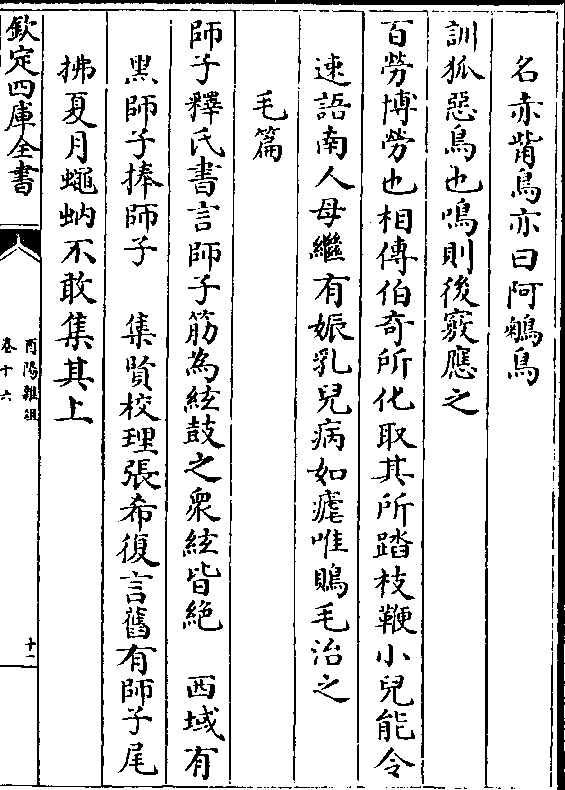 名赤觜鳥亦曰阿鵴鳥
訓狐惡鳥也鳴則後竅應之
百勞博勞也相傳伯奇所化取其所踏枝鞭小兒能令
速語南人母繼有娠乳兒病如瘧唯鵙毛治之
毛篇
師子釋氏書言師子筋為絃鼓之衆絃皆絶 西域有
黑師子捧師子 集賢校理張希復言舊有師子尾
拂夏月蠅蚋不敢集其上
欽定四庫全書
酉陽雜俎
卷十六
十二